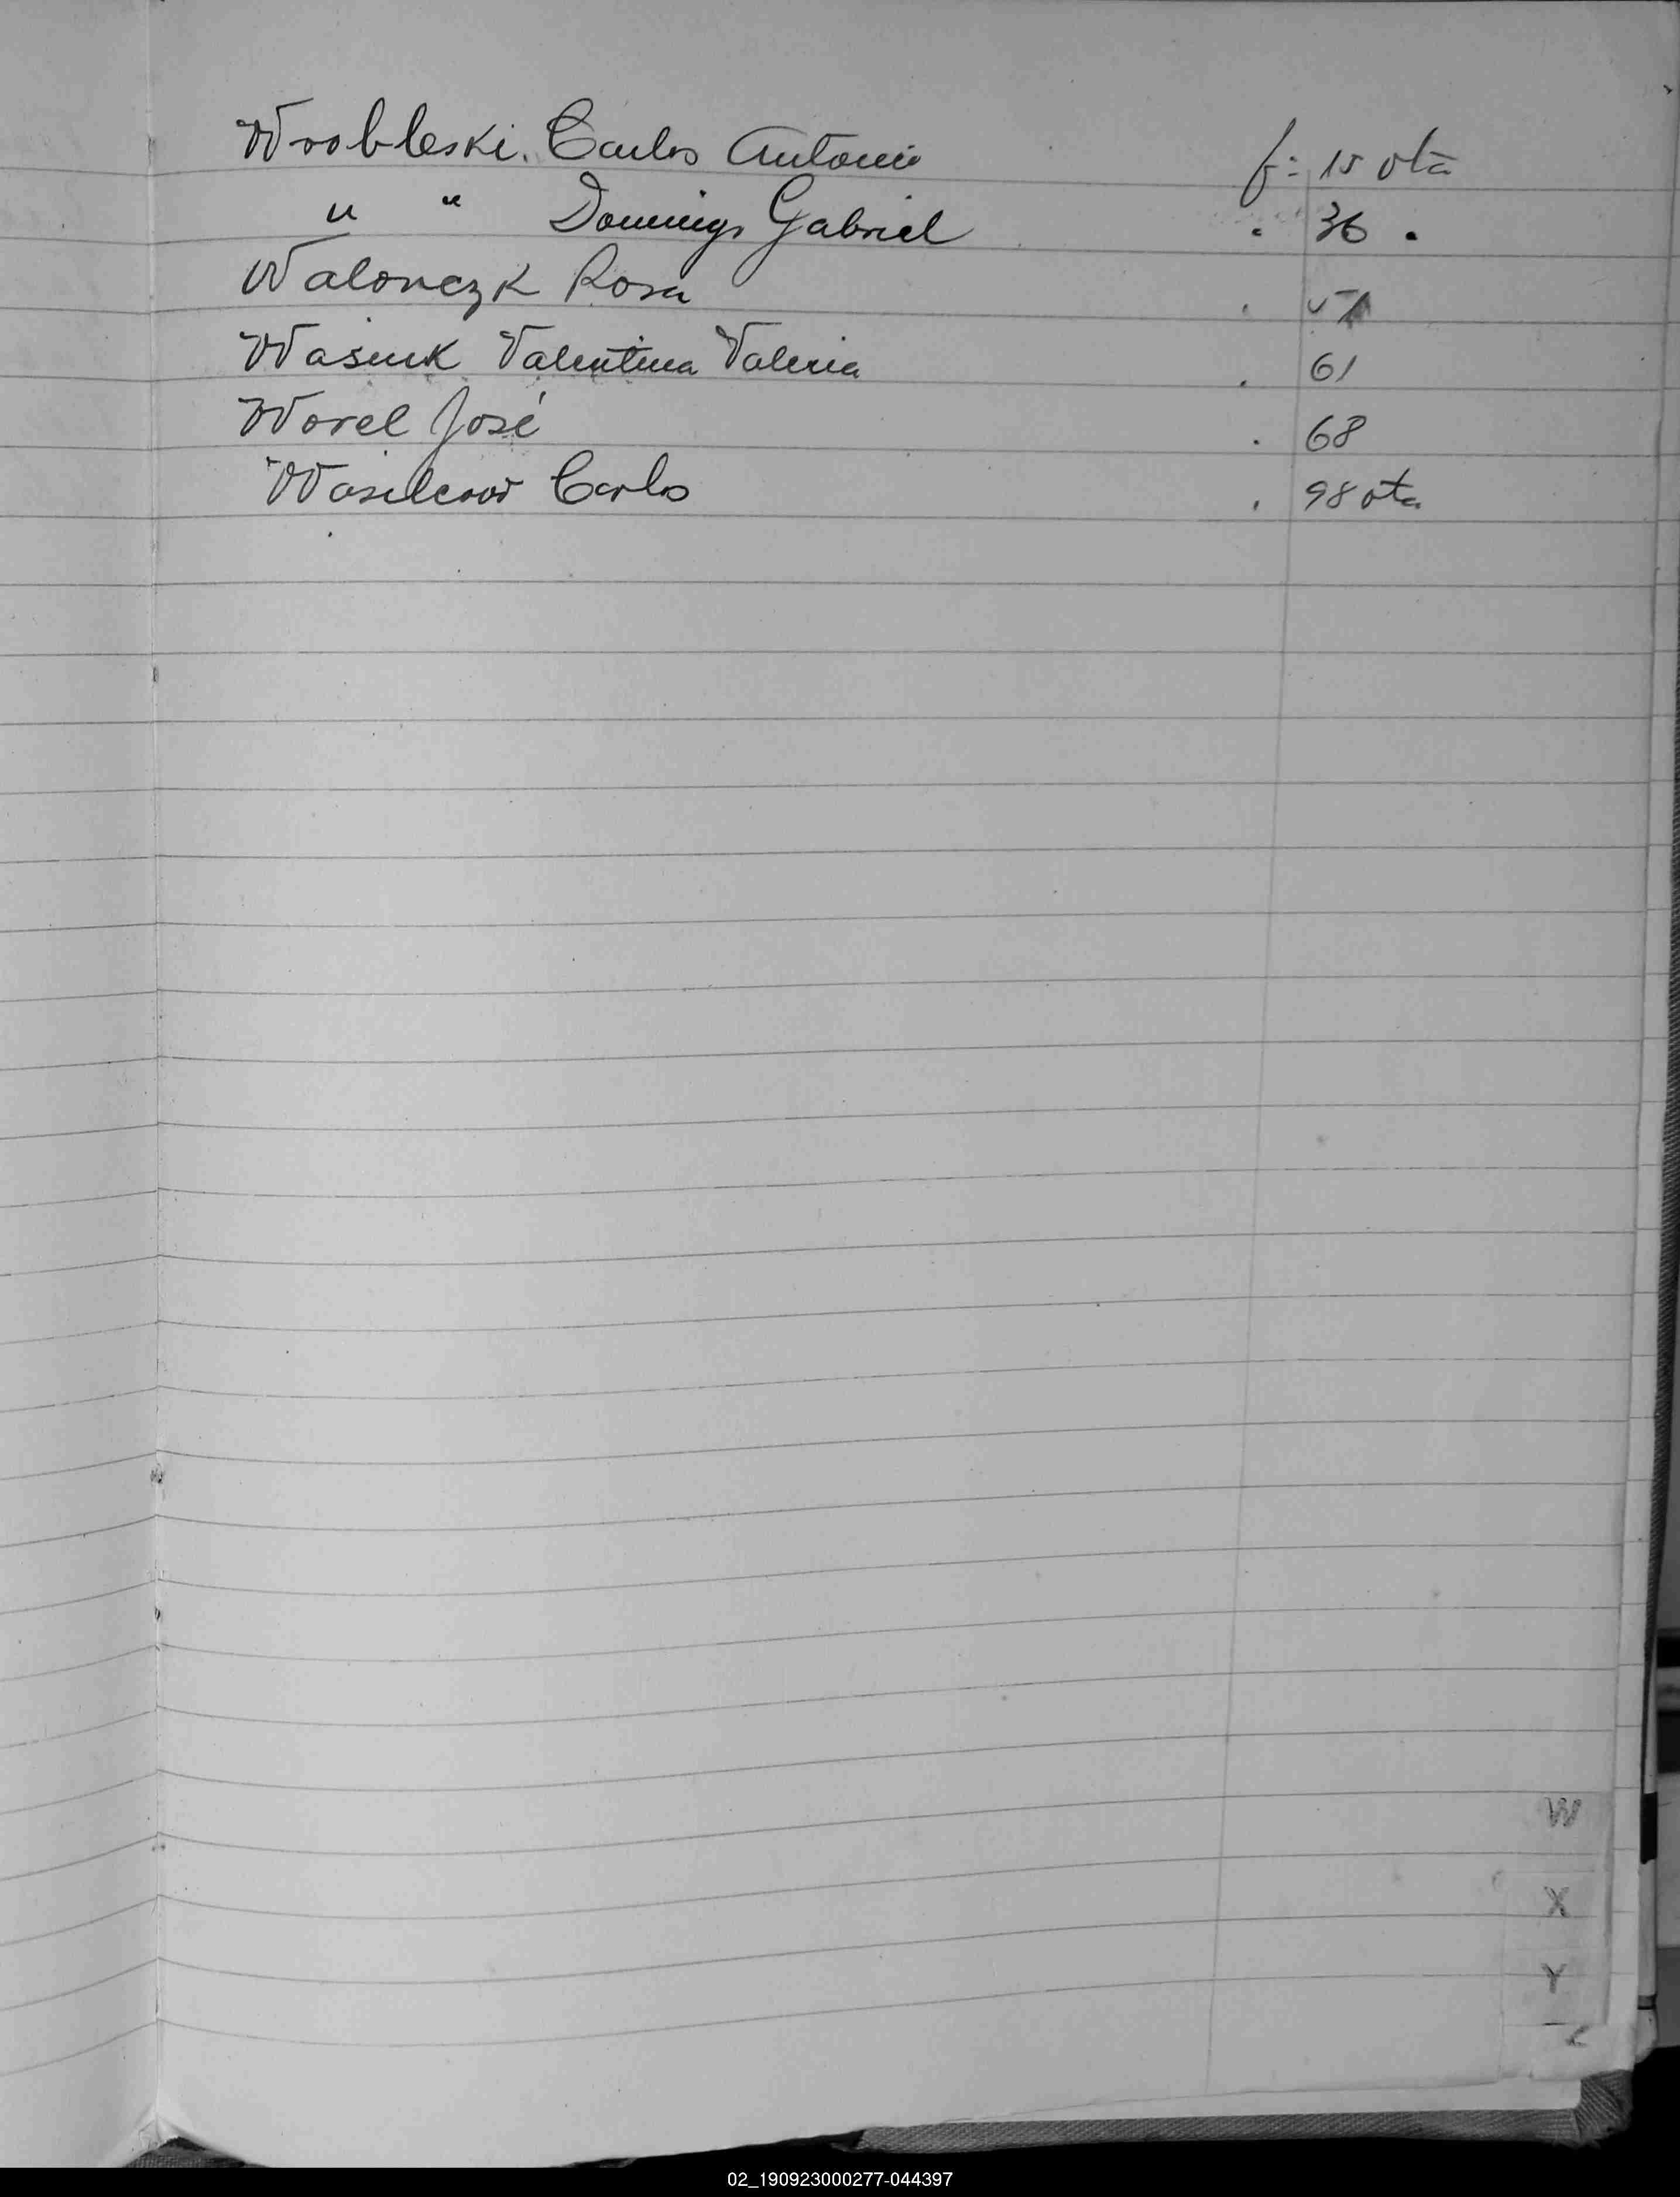 Wrobleski. Carlos Antonio f: 15 vta
" " Domingo Gabriel " 36 "
Walonczk Rosa "
Wasiuk Valentina Valeria " 61
Worel José " 68
Carlos " 98 vta
W
X
Y
Z
02_190923000277-044397